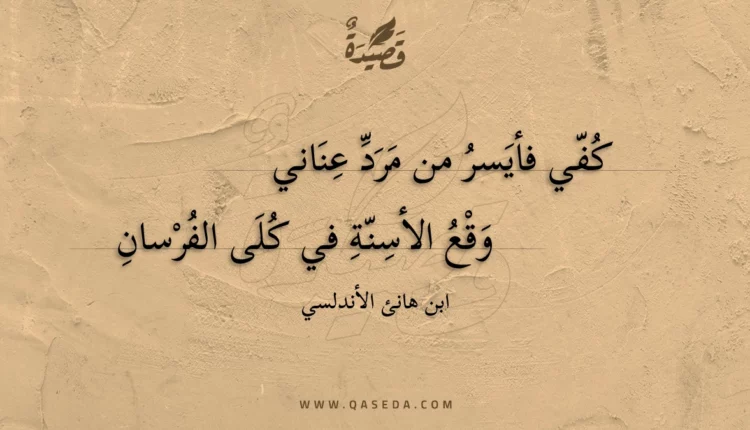 قَصِيْدَةٌ
كُفّي فأيَسرُ من مَرَدِّ عِنَاني
وَقْعُ الأسِنّةِ في كُلَى الفُرْسانِ
ابن هانئ الأندلسي
WWW.QASEDA.COM